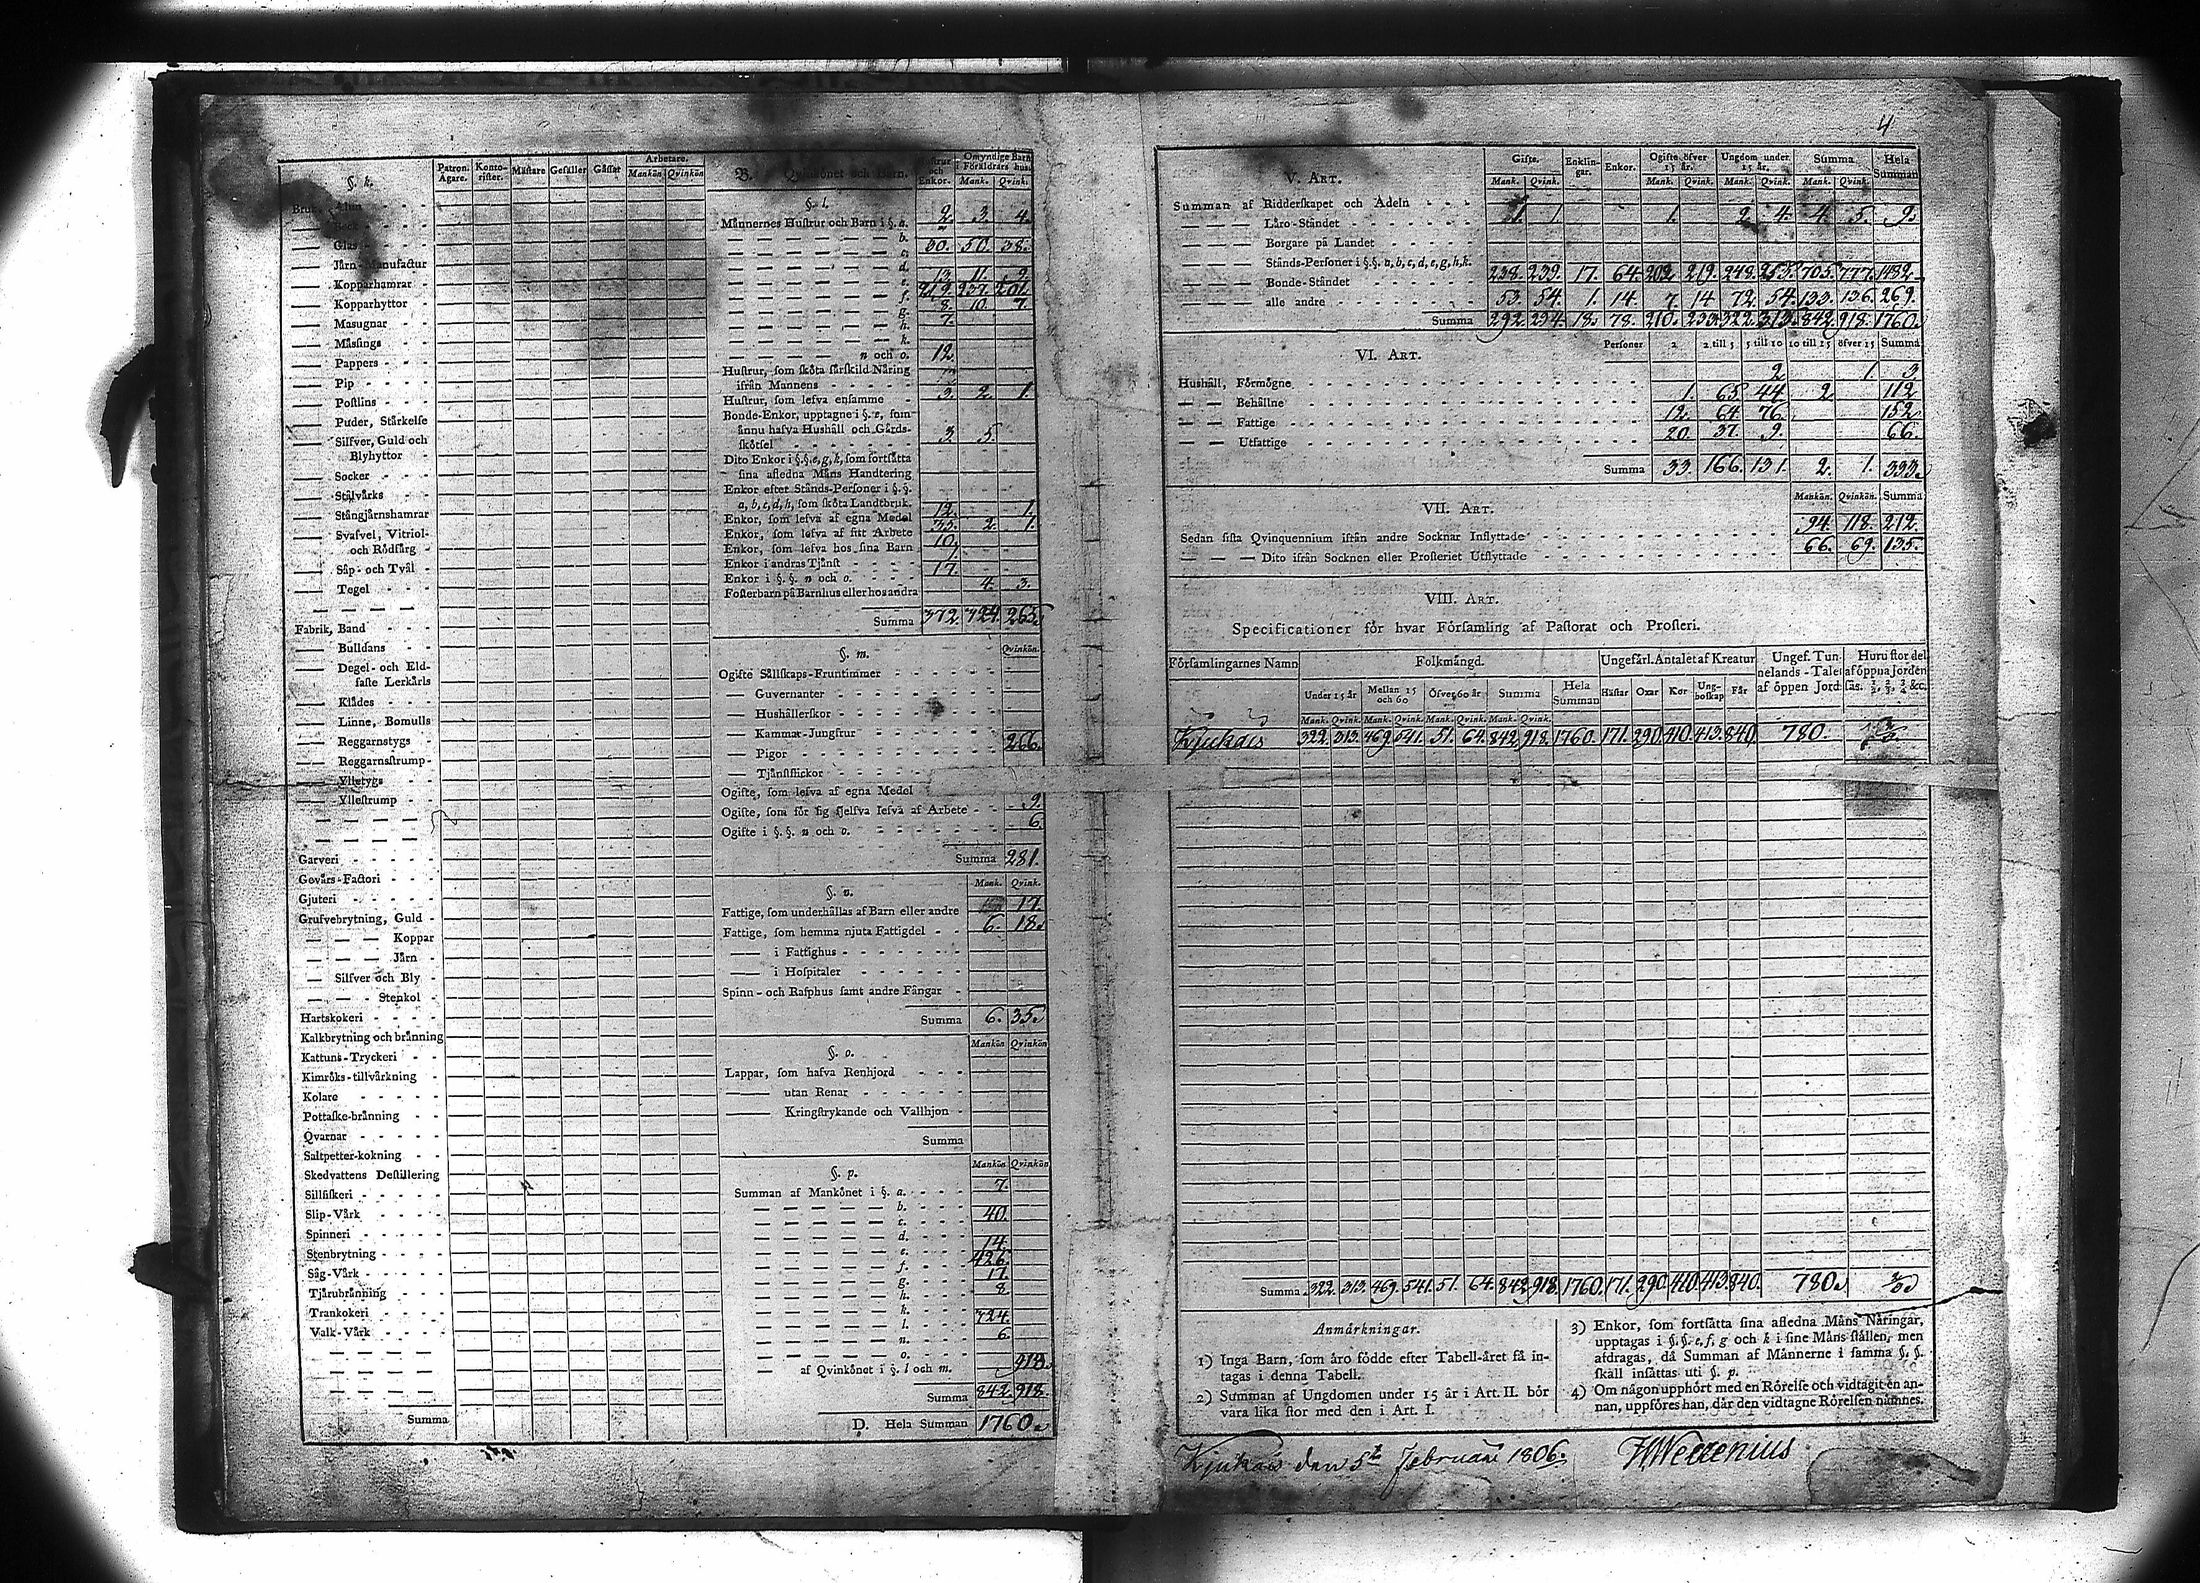 4
§. k.
Patron. Ägare.
Konto-rister.
Mästare
Gesäller
Gåssar
Arbetare.
Mankön Qvinkön
Bruk, Alun
— Beck
— Glas
— Järn-Manufactur
— Kopparhamrar
— Kopparhyttor
— Masugnar
— Mässings
— Pappers
— Pip
— Postlins
— Puder, Stärkelse
— Silfver, Guld och
Blyhyttor
— Socker
— Stålvårks
— Stångjårnshamrar
— Svafvel, Vitriol-
och Rödfårg
— Såp- och Tvål
— Tegel
Fabrik, Band
— Buldans
— Degel- och Eld-
faste Lerkårls
— Klådes
— Linne, Bomulls
— Reggarnstygs
— Reggarnsstrump
— Ylletygs
— Yllestrump
Garveri
Gevårs-Factori
Gjuteri
Grufvebrytning, Guld
— — — Koppar
— — — Jårn
— Silfver och Bly
— — Stenkol
Hartskokeri
Kalkbrytning och brånning
Kattuns-Tryckeri
Kimröks-tillvårkning
Kolare
Pottaske-brånning
Qvarnar
Saltpetter-kokning
Skedvattens Destillering
Sillfiskeri
Slip-Vårk
Spinneri
Stenbrytning
Såg-Vårk
Tjårubrånning
Trankokeri
Valk-Vårk
Summa
B. Qvinkönet och Barn.
Hustrur och Enkor.
Omyndige Barn i Föräldrars hus.
Mank. Qvink.
§. l.
Månnernes Hustrur och Barn i §. a. 2. 3. 4.
— — — — — b.
— — — — — c. 30. 50. 38.
— — — — — d.
— — — — — e. 13. 11. 9.
— — — — — f. 212. 237. 201.
— — — — — g. 8. 10. 7.
— — — — — h. 7.
— — — — — k.
— — — — n och o. 12.
Hustrur, som sköta särskild Nåring
ifrån Mannens
Hustrur, som lefva ensamme 3. 2. 1.
Bonde-Enkor, upptagne i §. e, som
ännu hafva Hushåll och Gårds-
skötsel 3. 5.
Dito Enkor i §.§. e, g, k, som fortsåtta
sina afledna Måns Handtering
Enkor efter Stånds-Personer i §.§.
a, b, c, d, h, som sköta Landtbruk.
Enkor, som lefva af egna Medel 12. 1.
Enkor, som lefva af sitt Arbete 35. 2. 1.
Enkor, som lefva hos sina Barn 10.
Enkor i andras Tjånst
Enkor i §. §. n och o. 17.
Fosterbarn på Barnhus eller hos andra 4. 3.
Summa 372. 324. 265.
§. m.
Qvinkön.
Ogifte Sållskaps-Fruntimmer
— Guvernanter
— Hushållerskor
— Kammar-Jungfrur
— Pigor 266.
— Tjånstflickor
Ogifte, som lefva af egna Medel
Ogifte, som för sig sjelfva lefva af Arbete 9.
Ogifte i §. §. n och o. 6.
Summa 281.
§. n.
Mank. Qvink.
Fattige, som underhållas af Barn eller andre 17.
Fattige, som hemma njuta Fattigdel 6. 18.
— i Fattighus
— i Hospitaler
Spinn- och Rasphus samt andre Fångar
Summa 6. 35.
§. o.
Mankön Qvinkön
Lappar, som hafva Renhjord
— utan Renar
— Kringstrykande och Vallhjon
Summa
§. p.
Mankön Qvinkön
Summan af Mankönet i §. a. 7.
— — — — — b.
— — — — — c. 40.
— — — — — d.
— — — — — e. 14.
— — — — — f. 426.
— — — — — g. 17.
— — — — — h. 8.
— — — — — k.
— — — — — l. 324.
— — — — — n. 6.
— — — — — o.
af Qvinkönet i §. l och m. 918.
Summa 842. 918.
D. Hela Summan 1760.
V. Art.
Gifte. Enklin-gar. Enkor. Ogifte öfver 15 år. Ungdom under 15 år. Summa Hela Summan
Mank. Qvink. Mank. Qvink. Mank. Qvink. Mank. Qvink.
Summan af Ridderskapet och Adeln
— — — Låro-Ståndet 1. 1. 1. 2. 4. 4. 5. 9.
— — — Borgare på Landet
— — — Stånds-Personer i §.§. a, b, c, d, e, g, h, k.
— — — Bonde-Ståndet 238. 239. 17. 64. 202. 219. 248. 255. 705. 777. 1482.
— — — alle andre 53. 54. 1. 14. 7. 14 72. 54. 133. 136. 269.
Summa 292. 294. 18. 78. 210. 233. 322. 313. 842. 918. 1760.
VI. Art.
Personer 2 2 till 5 5 till 10 10 till 15 öfver 15 Summa
Hushåll, Förmögne 2 1. 3
— — Behållne 1. 65 44 2 112
— — Fattige 12. 64 76 152
— — Utfattige 20. 37. 9. 66.
Summa 33. 166. 131. 2. 1. 333.
VII. Art.
Mankön. Qvinkön. Summa
Sedan sista Qvinquennium ifrån andre Socknar Inflyttade 94. 118. 212.
— — — Dito ifrån Socknen eller Prosteriet Utflyttade 66. 69. 135.
VIII. Art.
Specificationer för hvar Församling af Pastorat och Prosteri.
Församlingarnes Namn Folkmängd. Ungefårl. Antalet af Kreatur Ungef. Tun-nelands-Talet af öppen Jord Huru stor del af öppna Jorden sås. ½, ⅔, ¾ &c.
Under 15 år Mellan 15 och 60 Öfver 60 år Summa Hela Summan Håstar Oxar Kor Ung-boskap Får
Mank. Qvink. Mank. Qvink. Mank. Qvink. Mank. Qvink.
Kjukais 322. 313. 469. 541. 51. 64. 842. 918. 1760. 171. 290. 410. 413. 840. 780. 2/3
Summa 322. 313. 469. 541. 51. 64. 842. 918. 1760. 171. 290. 410. 413. 840. 780. 2/3
Anmårkningar.
1) Inga Barn, som åro födde efter Tabell-året få in-
tagas i denna Tabell.
2) Summan af Ungdomen under 15 år i Art. II. bör
vara lika stor med den i Art. I.
3) Enkor, som fortsåtta sina afledna Måns Nåringar,
upptagas i §. §. e, f, g och k i sine Måns stållen, men
afdragas, då Summan af Månnerne i samma §. §.
skall insåttas uti §. p.
4) Om någon upphört med en Rörelse och vidtagit en an-
nan, uppföres han, där den vidtagne Rörelsen nämnes.
Kjukais den 5t Februari 1806.